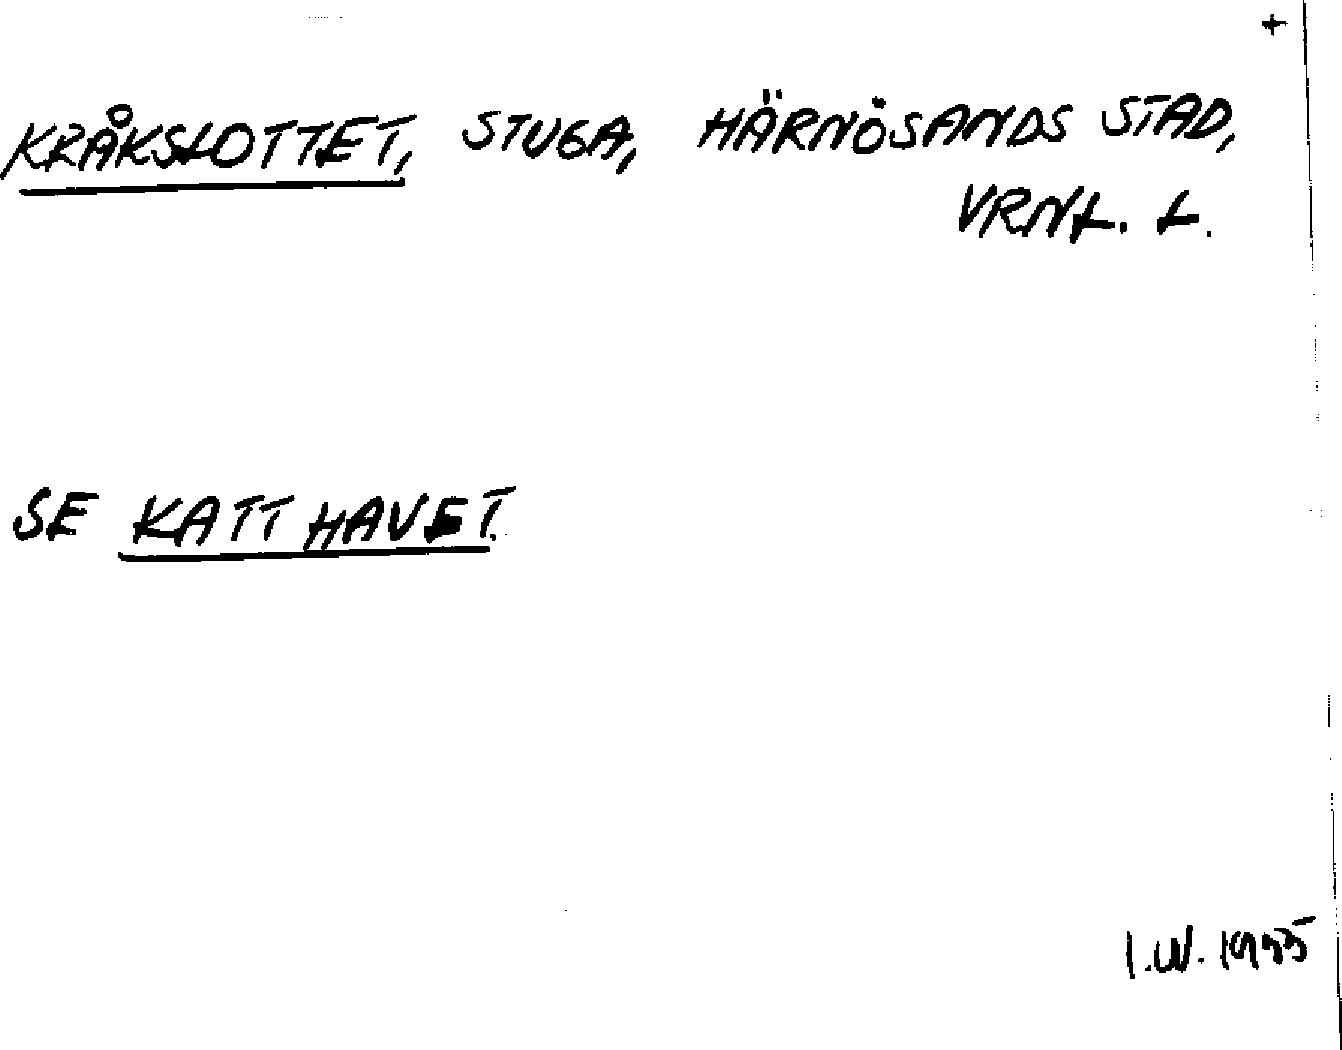 +
KRÅKSLOTTET, STUGA, HÄRNÖSANDS STAD,
VRNL. L.
SE KATTHAVET.
I.W. 1935